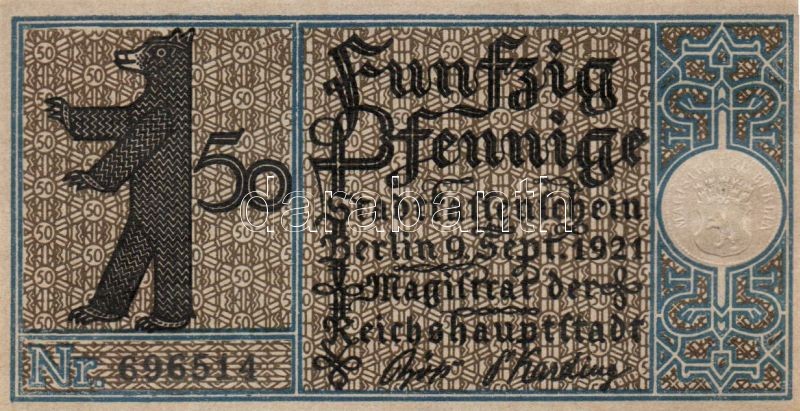 50
Fünfzig
Pfennige
Stadtkassenschein
Berlin 9. Sept. 1921
Magistrat der
Reichshauptstadt
Nr. 696514
darabanth